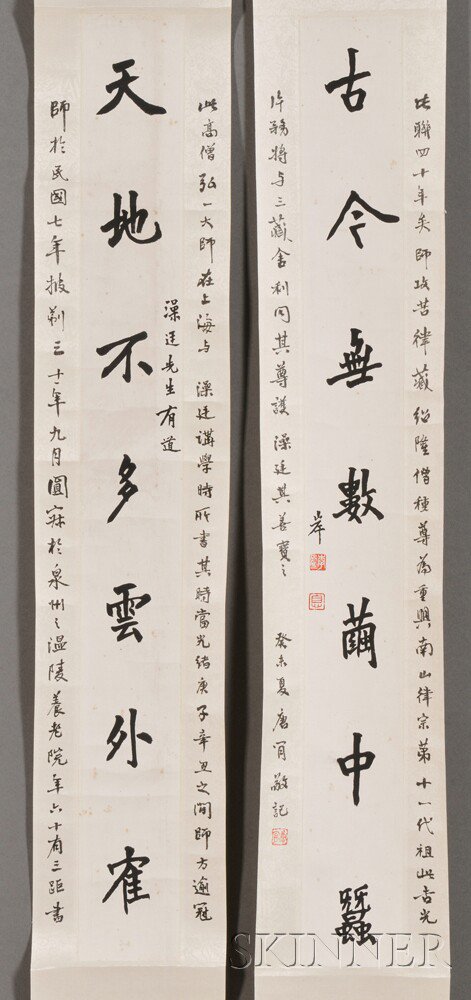 此高僧弘一大師在上海与 澡廷講學時所書其時當光緒庚子辛丑之間師方逾冠
澡廷先生有道
天地不多雲外寉
師於民國七年披剃三十年九月圓寂於泉州之溫陵養老院年六十有三距書
此聯四十年矣師攻苦律藏紹隆僧種尊為重興南山律宗弟十一代祖此吉光
古今無數繭中蠶
岸
片務將与三藏舍利同其尊護 澡廷其善寶之 癸未夏唐肎敬記
SKINNER